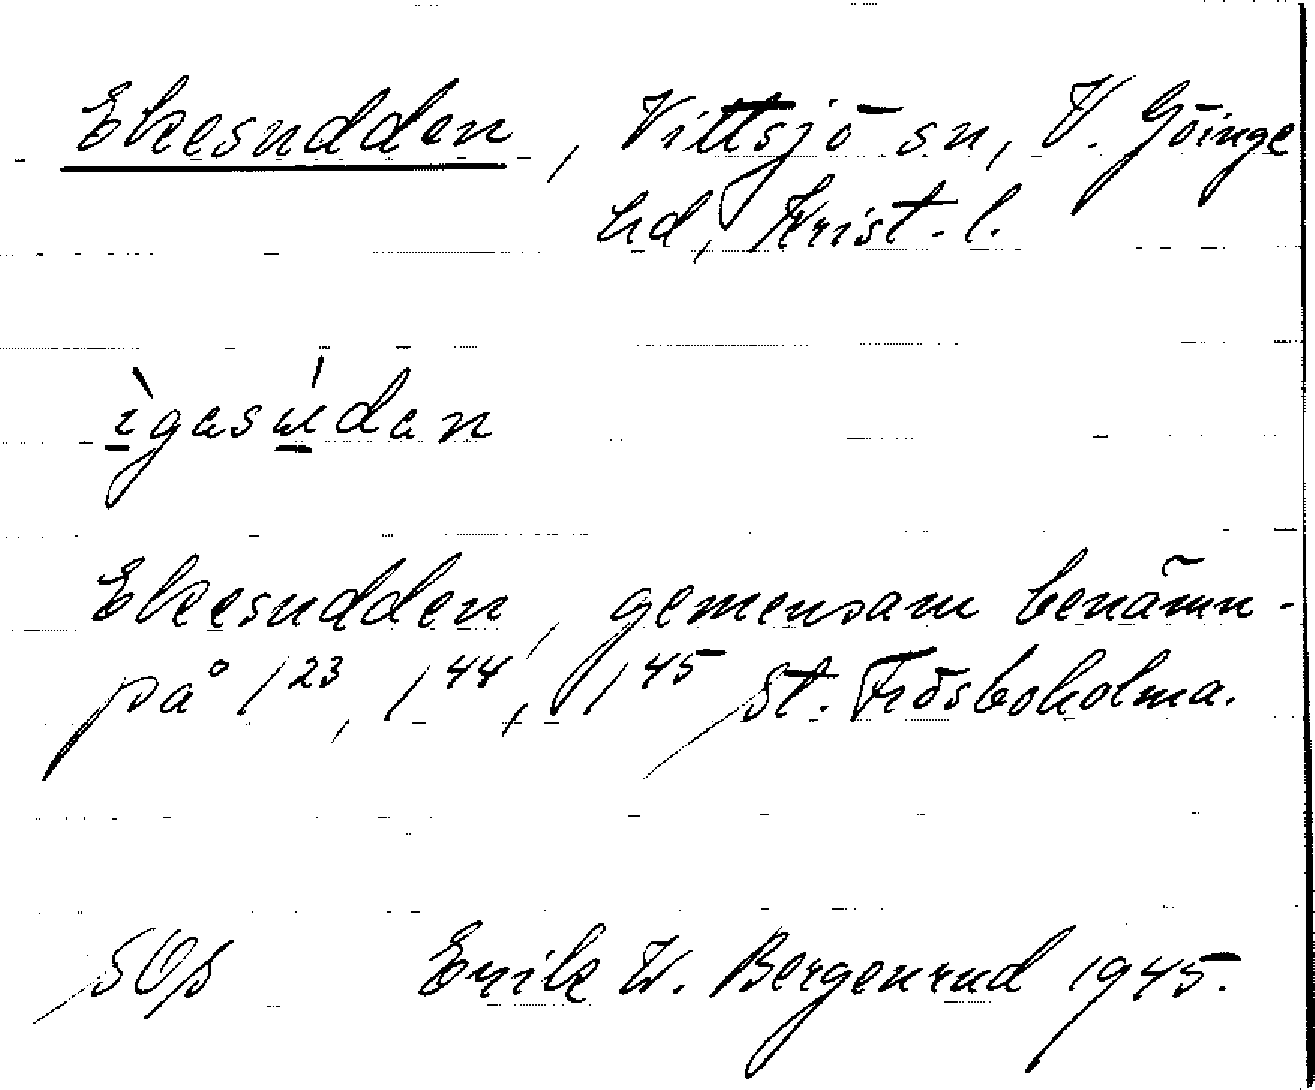 Ekesudden, Vittsjö sn, V. Göinge
hd, Krist. l.
ìgasúdan
Ekesudden, gemensam benämn-
på 1²³, 1⁴⁴, 1⁴⁵ St. Frösboholma.
SOp Erik W. Bergenrud 1945.